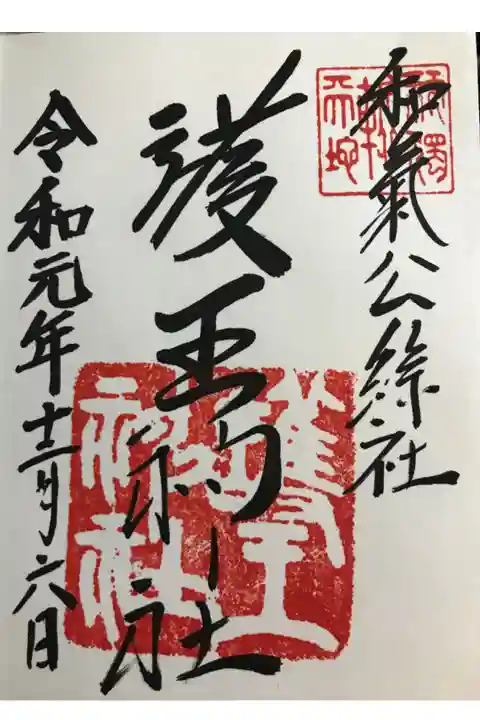 和氣公綜社
護王神社
令和元年十二月六日
護王
神社